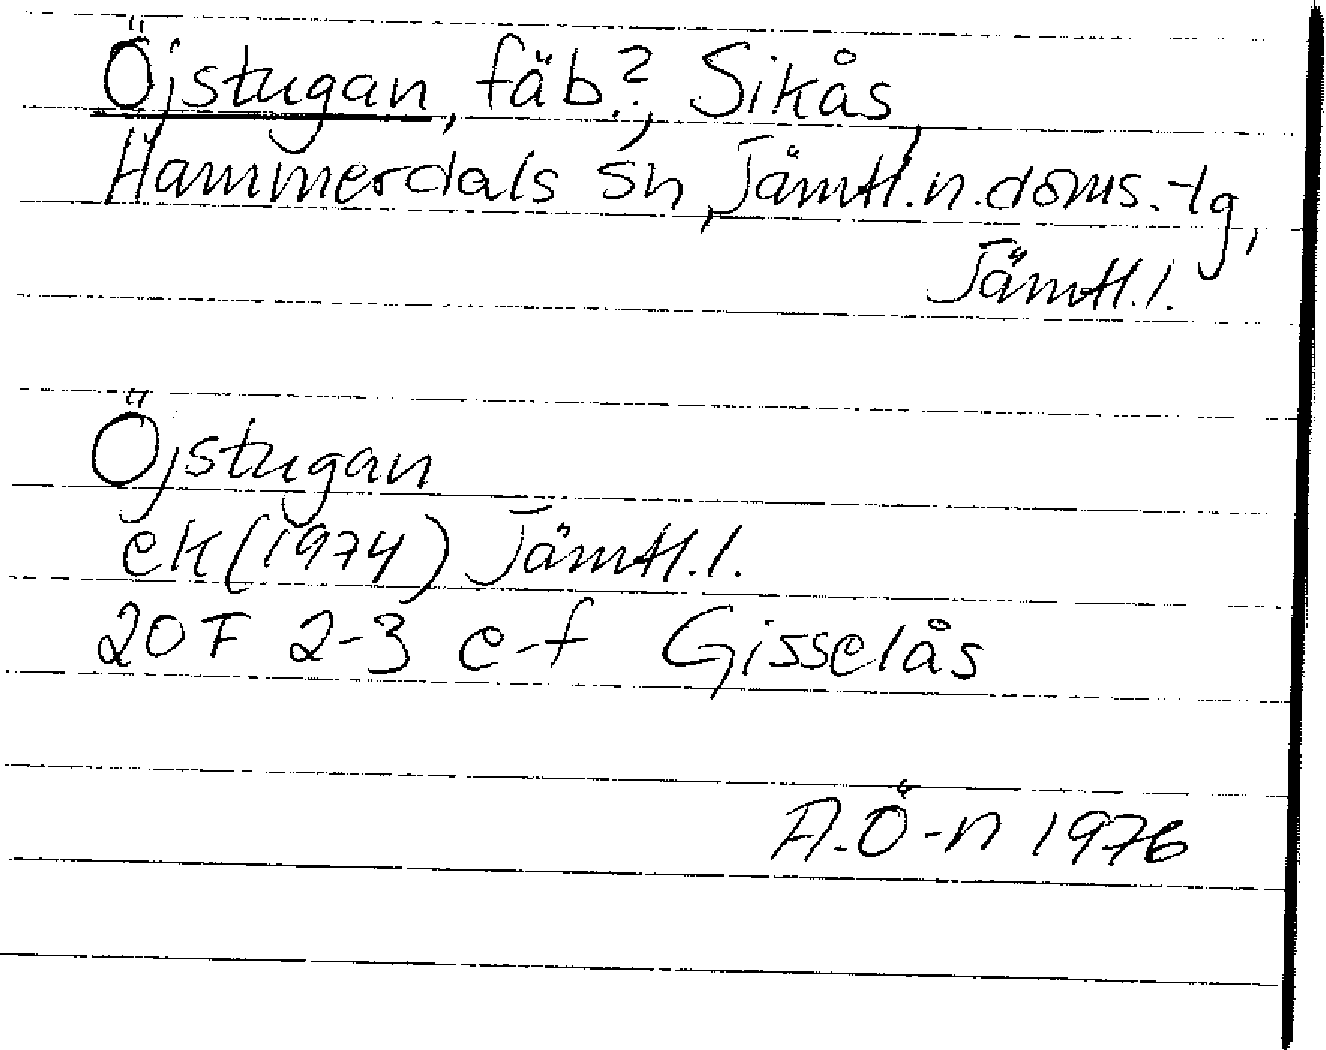 Öjstugan, fäb.?, Sikås,
Hammerdals sn, Jämtl.n.doms.tg,
Jämtl.l.
Öjstugan
ek (1974) Jämtl.l.
20F 2-3 e-f Gisselås
A.Ö-n 1976